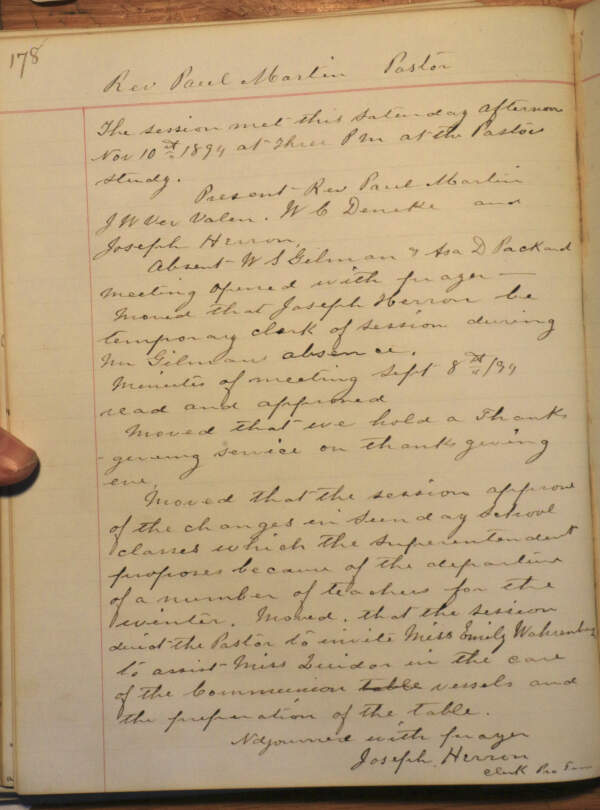 178
Rev Paul Martin Pastor
The session met this Saturday afternoon
Nov 10th 1894 at Three PM at the Pastors
study.
Present Rev Paul Martin
J W Ver Valen. W C Deneke and
Joseph Herron,
Absent W S Gilman & Asa D Packard
meeting opened with prayer —
Moved that Joseph Herron be
temporary clerk of session during
Mr Gilman absence.
Minutes of meeting Sept 8th/94
read and approved
Moved that we hold a Thanks
-giveing service on thanksgiveing
eve,
Moved that the session approve
of the changes in Sunday school
classes which the Superentendent
proposes because of the departure
of a number of teachers for the
winter. Moved, that the session
direct the Pastor to invite Miss Emily
to assist Miss Quidor in the care
of the Communion table vessels and
the preparation of the table.
Adjourned with prayer
Joseph Herron
Clerk Pro Tem